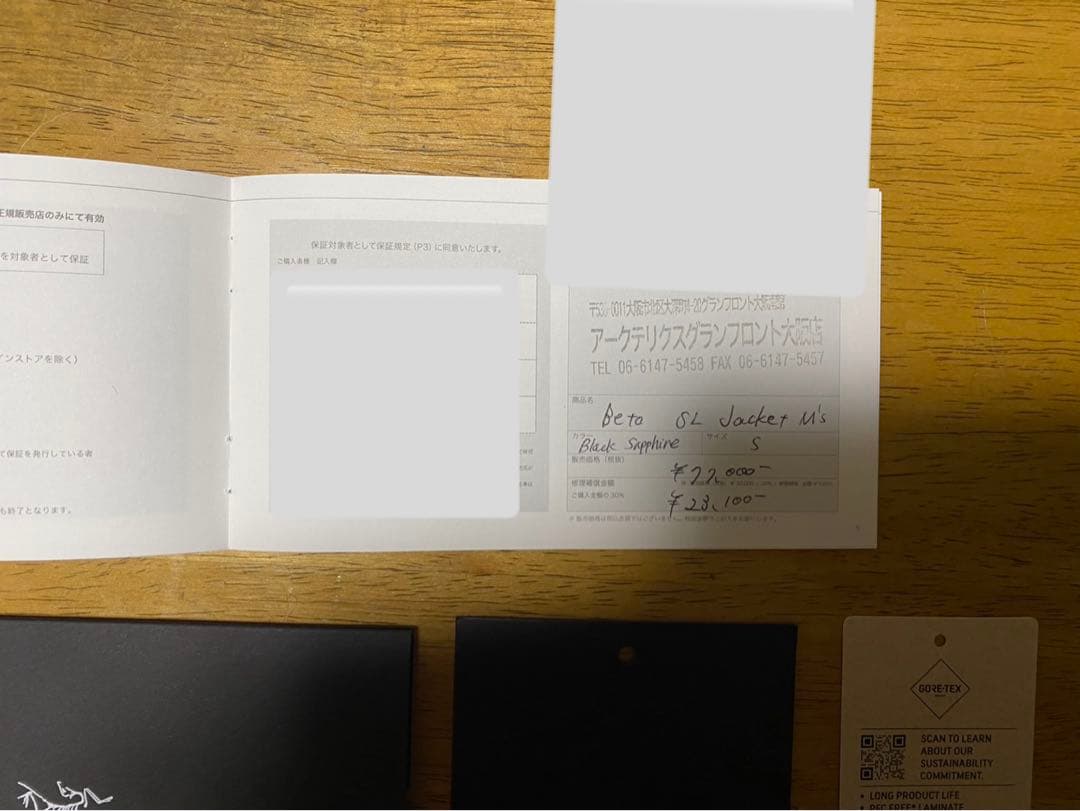 正規販売店のみにて有効
を対象者として保証
インストアを除く）
て保証を発行している者
も終了となります。
保証対象者として保証規定（P3）に同意いたします。
ご購入者様 記入欄
アークテリクスグランフロント大阪店
TEL 06-6147-5458 FAX 06-6147-5457
商品名
Beta SL Jacket M's
カラー
Black Sapphire
サイズ
S
販売価格（税抜）
修理補償金額
ご購入金額の30%
¥23,100-
GORE-TEX
SCAN TO LEARN
ABOUT OUR
SUSTAINABILITY
COMMITMENT.
• LONG PRODUCT LIFE
• PFC FREE* LAMINATE